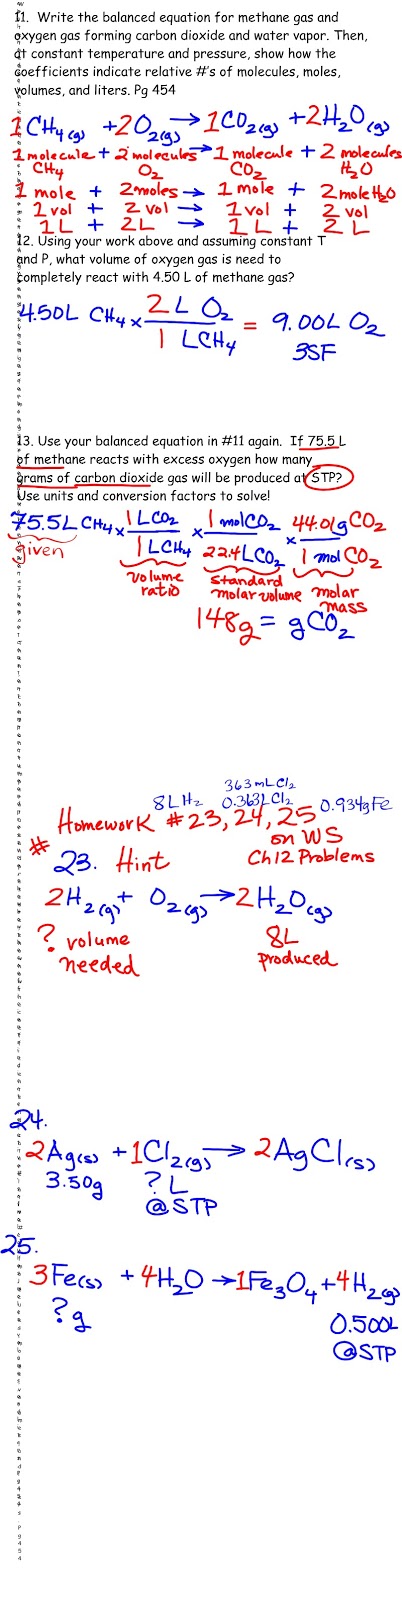 11. Write the balanced equation for methane gas and
oxygen gas forming carbon dioxide and water vapor. Then,
at constant temperature and pressure, show how the
coefficients indicate relative #'s of molecules, moles,
volumes, and liters. Pg 454
1CH₄(g) +2O₂(g) → 1CO₂(g) +2H₂O(g)
1 molecule + 2 molecules → 1 molecule + 2 molecules
CH₄ O₂ CO₂ H₂O
1 mole + 2moles → 1 mole + 2mole H₂O
1 vol + 2 vol → 1 vol + 2 vol
1L + 2L → 1L + 2L
12. Using your work above and assuming constant T
and P, what volume of oxygen gas is need to
completely react with 4.50 L of methane gas?
4.50L CH₄ x 2L O₂ / 1 LCH₄ = 9.00L O₂
3SF
13. Use your balanced equation in #11 again. If 75.5 L
of methane reacts with excess oxygen how many
grams of carbon dioxide gas will be produced at STP?
Use units and conversion factors to solve!
75.5L CH₄ x 1LCO₂ / 1LCH₄ x 1molCO₂ / 22.4LCO₂ x 44.01gCO₂ / 1molCO₂
given
volume ratio
standard molar volume
molar mass
148g = gCO₂
363mLCl₂
8LH₂ 0.363LCl₂ 0.934gFe
# Homework #23, 24, 25
on WS
Ch12 Problems
23. Hint
2H₂(g) + O₂(g) → 2H₂O(g)
? volume needed
8L produced
24.
2Ag(s) +1Cl₂(g) → 2AgCl(s)
3.50g ?L
@STP
25.
3Fe(s) +4H₂O →1Fe₃O₄+4H₂(g)
?g 0.500L
@STP